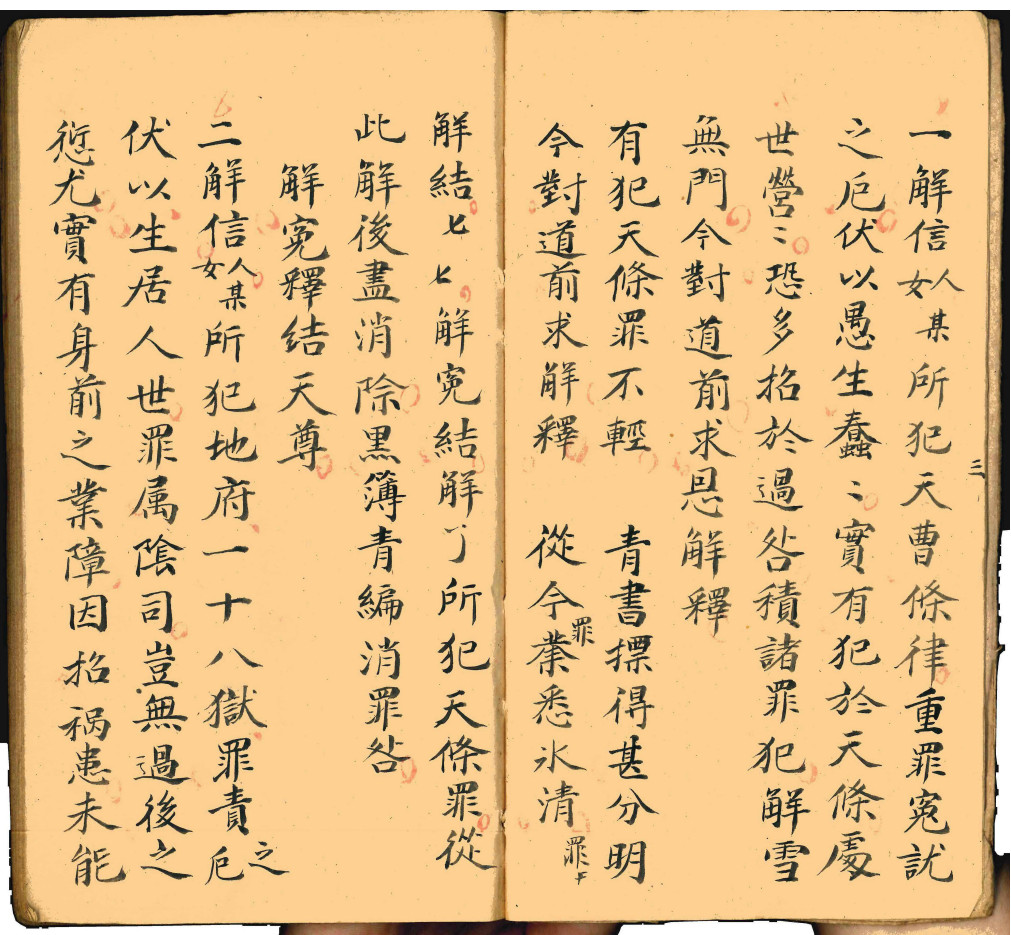 一解信人女某所犯天曹條律重罪寃訧
之戹伏以愚生蠢〻實有犯於天條處
世營〻恐多招於過咎積諸罪犯解雪
無門今對道前求恳解釋
有犯天條罪不輕 青書摽得甚分明
今對道前求解釋 從今罪業悉氷清 罪
三
解結 解寃結解了所犯天條罪從
此解後盡消除黑簿青編消罪咎
解寃釋結天尊
二解信人女某所犯地府一十八獄罪責之戹
伏以生居人世罪属隂司豈無過後之
愆尤實有身前之業障因招禍患未能